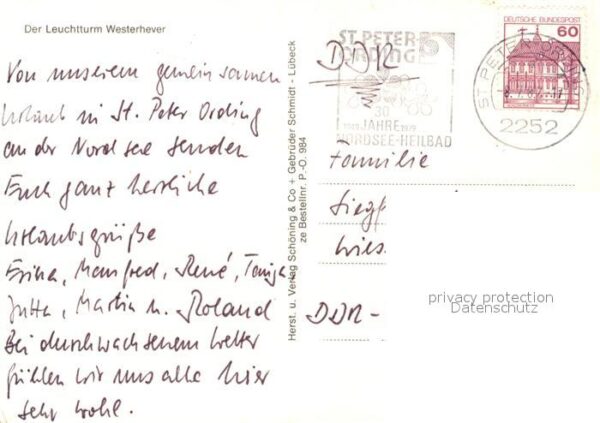 Der Leuchtturm Westerhever
Von unserem gemeinsamen
Urlaub in St. Peter Ording
an der Nordsee senden
Euch ganz herzliche
Urlaubsgrüße
Erika, Manfred, René, Tanja
Jutta, Martin u. Roland
Bei durchwachsenem Wetter
fühlen wir uns alle hier
sehr wohl.
Herst. u. Verlag Schöning & Co + Gebrüder Schmidt - Lübeck
ze Bestellnr. P.-O. 984
ST. PETER-
ORDING
30
1949 JAHRE 1979
NORDSEE-HEILBAD
DDR
DEUTSCHE BUNDESPOST
60
ST. PETER-ORDING
2252
Familie
Siegf
Wies
DDR-
privacy protection
Datenschutz